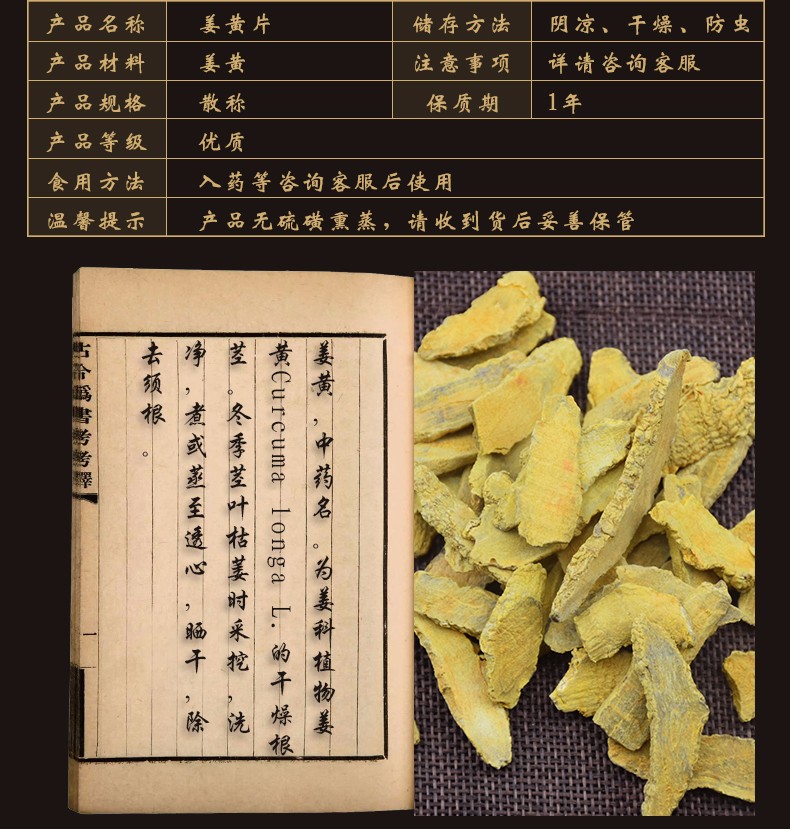 产品名称 姜黄片 储存方法 阴凉、干燥、防虫
产品材料 姜黄 注意事项 详请咨询客服
产品规格 散称 保质期 1年
产品等级 优质
食用方法 入药等咨询客服后使用
温馨提示 产品无硫磺熏蒸，请收到货后妥善保管
姜黄，中药名。为姜科植物姜
黄Curcuma longa L.的干燥根
茎。冬季茎叶枯萎时采挖，洗
净，煮或蒸至透心，晒干，除
去须根。
書考考釋
一